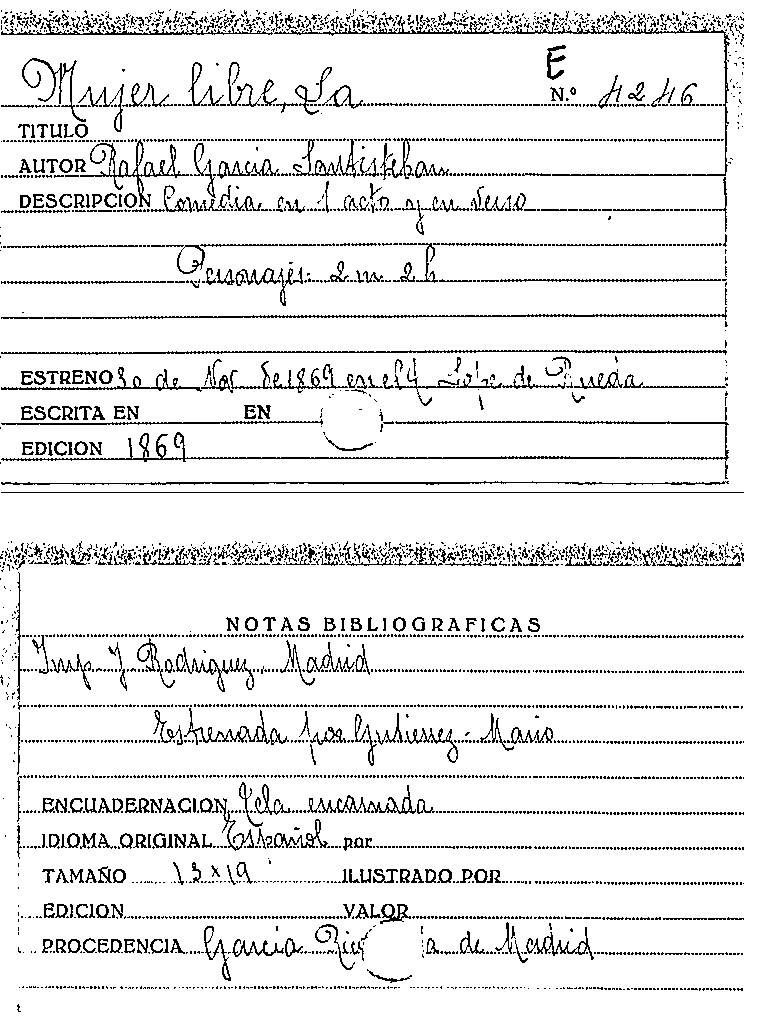 E
Mujer libre, La N.º 4246
TITULO
AUTOR Rafael Garcia Santisteban
DESCRIPCION Comedia en 1 acto y en verso
Personajes: 2 m 2 h
ESTRENO 30 de Nov de 1869 en el Lope de Rueda
ESCRITA EN EN
EDICION 1869
NOTAS BIBLIOGRAFICAS
Imp J Rodriguez, Madrid
Estrenada por Gutierrez - Mario
ENCUADERNACION Tela encarnada
IDIOMA ORIGINAL Español por
TAMAÑO 13x19 ILUSTRADO POR
EDICION VALOR
PROCEDENCIA Garcia de Madrid